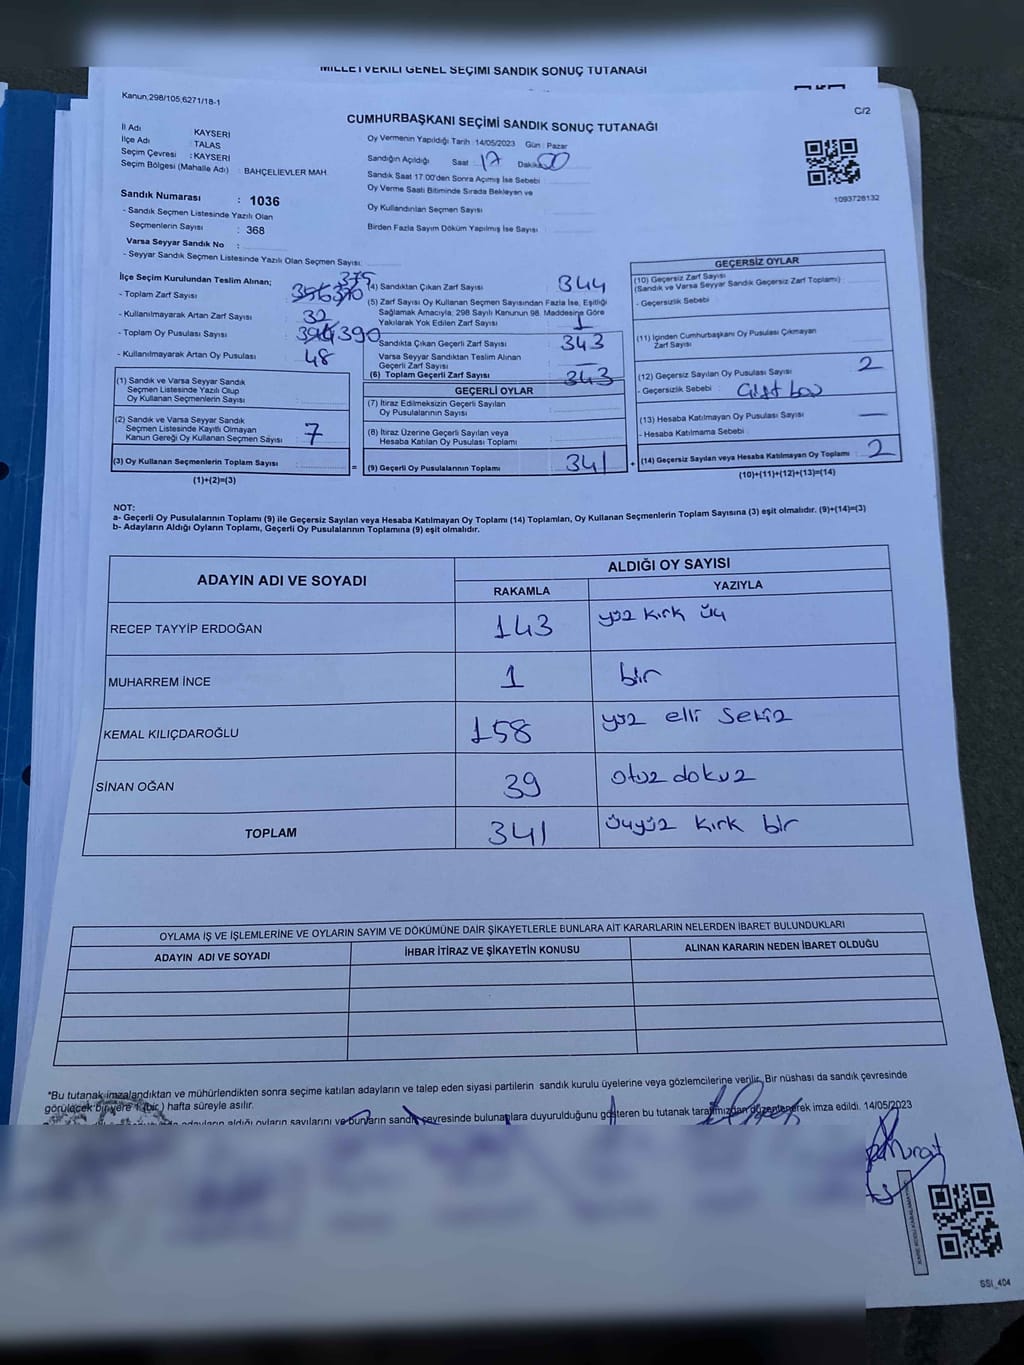 MİLLETVEKİLİ GENEL SEÇİMİ SANDIK SONUÇ TUTANAĞI
Kanun;298/105,6271/18-1
C/2
CUMHURBAŞKANI SEÇİMİ SANDIK SONUÇ TUTANAĞI
İl Adı KAYSERİ
İlçe Adı : TALAS
Seçim Çevresi : KAYSERİ
Seçim Bölgesi (Mahalle Adı) : BAHÇELİEVLER MAH.
Sandık Numarası : 1036
- Sandık Seçmen Listesinde Yazılı Olan
Seçmenlerin Sayısı : 368
Varsa Seyyar Sandık No :
- Seyyar Sandık Seçmen Listesinde Yazılı Olan Seçmen Sayısı:
Oy Vermenin Yapıldığı Tarih : 14/05/2023 Gün : Pazar
Sandığın Açıldığı Saat : 17 Dakika 00
Sandık Saat 17:00'den Sonra Açımış İse Sebebi
Oy Verme Saati Bitiminde Sırada Bekleyen ve
Oy Kullandırılan Seçmen Sayısı :
Birden Fazla Sayım Döküm Yapılmış İse Sayısı :
1093728132
İlçe Seçim Kurulundan Teslim Alınan;
375
- Toplam Zarf Sayısı : 370
- Kullanılmayarak Artan Zarf Sayısı : 32
- Toplam Oy Pusulası Sayısı : 390
- Kullanılmayarak Artan Oy Pusulası : 48
(1) Sandık ve Varsa Seyyar Sandık
Seçmen Listesinde Yazılı Olup
Oy Kullanan Seçmenlerin Sayısı :
(2) Sandık ve Varsa Seyyar Sandık
Seçmen Listesinde Kayıtlı Olmayan
Kanun Gereği Oy Kullanan Seçmen Sayısı : 7
(3) Oy Kullanan Seçmenlerin Toplam Sayısı :
(1)+(2)=(3)
(4) Sandıktan Çıkan Zarf Sayısı : 344
(5) Zarf Sayısı Oy Kullanan Seçmen Sayısından Fazla İse, Eşitliği
Sağlamak Amacıyla, 298 Sayılı Kanunun 98. Maddesine Göre
Yakılarak Yok Edilen Zarf Sayısı : 1
Sandıkta Çıkan Geçerli Zarf Sayısı : 343
Varsa Seyyar Sandıktan Teslim Alınan
Geçerli Zarf Sayısı :
(6) Toplam Geçerli Zarf Sayısı : 343
GEÇERLİ OYLAR
(7) İtiraz Edilmeksizin Geçerli Sayılan
Oy Pusulalarının Sayısı :
(8) İtiraz Üzerine Geçerli Sayılan veya
Hesaba Katılan Oy Pusulası Toplamı :
= (9) Geçerli Oy Pusulalarının Toplamı : 341
GEÇERSİZ OYLAR
(10) Geçersiz Zarf Sayısı
(Sandık ve Varsa Seyyar Sandık Geçersiz Zarf Toplamı) :
- Geçersizlik Sebebi :
(11) İçinden Cumhurbaşkanı Oy Pusulası Çıkmayan
Zarf Sayısı :
(12) Geçersiz Sayılan Oy Pusulası Sayısı : 2
- Geçersizlik Sebebi :
(13) Hesaba Katılmayan Oy Pusulası Sayısı : —
- Hesaba Katılmama Sebebi :
+ (14) Geçersiz Sayılan veya Hesaba Katılmayan Oy Toplamı : 2
(10)+(11)+(12)+(13)=(14)
NOT:
a- Geçerli Oy Pusulalarının Toplamı (9) ile Geçersiz Sayılan veya Hesaba Katılmayan Oy Toplamı (14) Toplamları, Oy Kullanan Seçmenlerin Toplam Sayısına (3) eşit olmalıdır. (9)+(14)=(3)
b- Adayların Aldığı Oyların Toplamı, Geçerli Oy Pusulalarının Toplamına (9) eşit olmalıdır.
ADAYIN ADI VE SOYADI
ALDIĞI OY SAYISI
RAKAMLA YAZIYLA
RECEP TAYYİP ERDOĞAN 143 yüz kırk üç
MUHARREM İNCE 1 bir
KEMAL KILIÇDAROĞLU 158 yüz elli sekiz
SİNAN OĞAN 39 otuz dokuz
TOPLAM 341 üçyüz kırk bir
OYLAMA İŞ VE İŞLEMLERİNE VE OYLARIN SAYIM VE DÖKÜMÜNE DAİR ŞİKAYETLERLE BUNLARA AİT KARARLARIN NELERDEN İBARET BULUNDUKLARI
ADAYIN ADI VE SOYADI İHBAR İTİRAZ VE ŞİKAYETİN KONUSU ALINAN KARARIN NEDEN İBARET OLDUĞU
*Bu tutanak imzalandıktan ve mühürlendikten sonra seçime katılan adayların ve talep eden siyasi partilerin sandık kurulu üyelerine veya gözlemcilerine verilir. Bir nüshası da sandık çevresinde
görülecek bir yere 1 (bir ) hafta süreyle asılır.
adayların aldığı oyların sayılarını ve bunların sandık çevresinde bulunanlara duyurulduğunu gösteren bu tutanak tarafımızdan düzenlenerek imza edildi. 14/05/2023
SSI_404